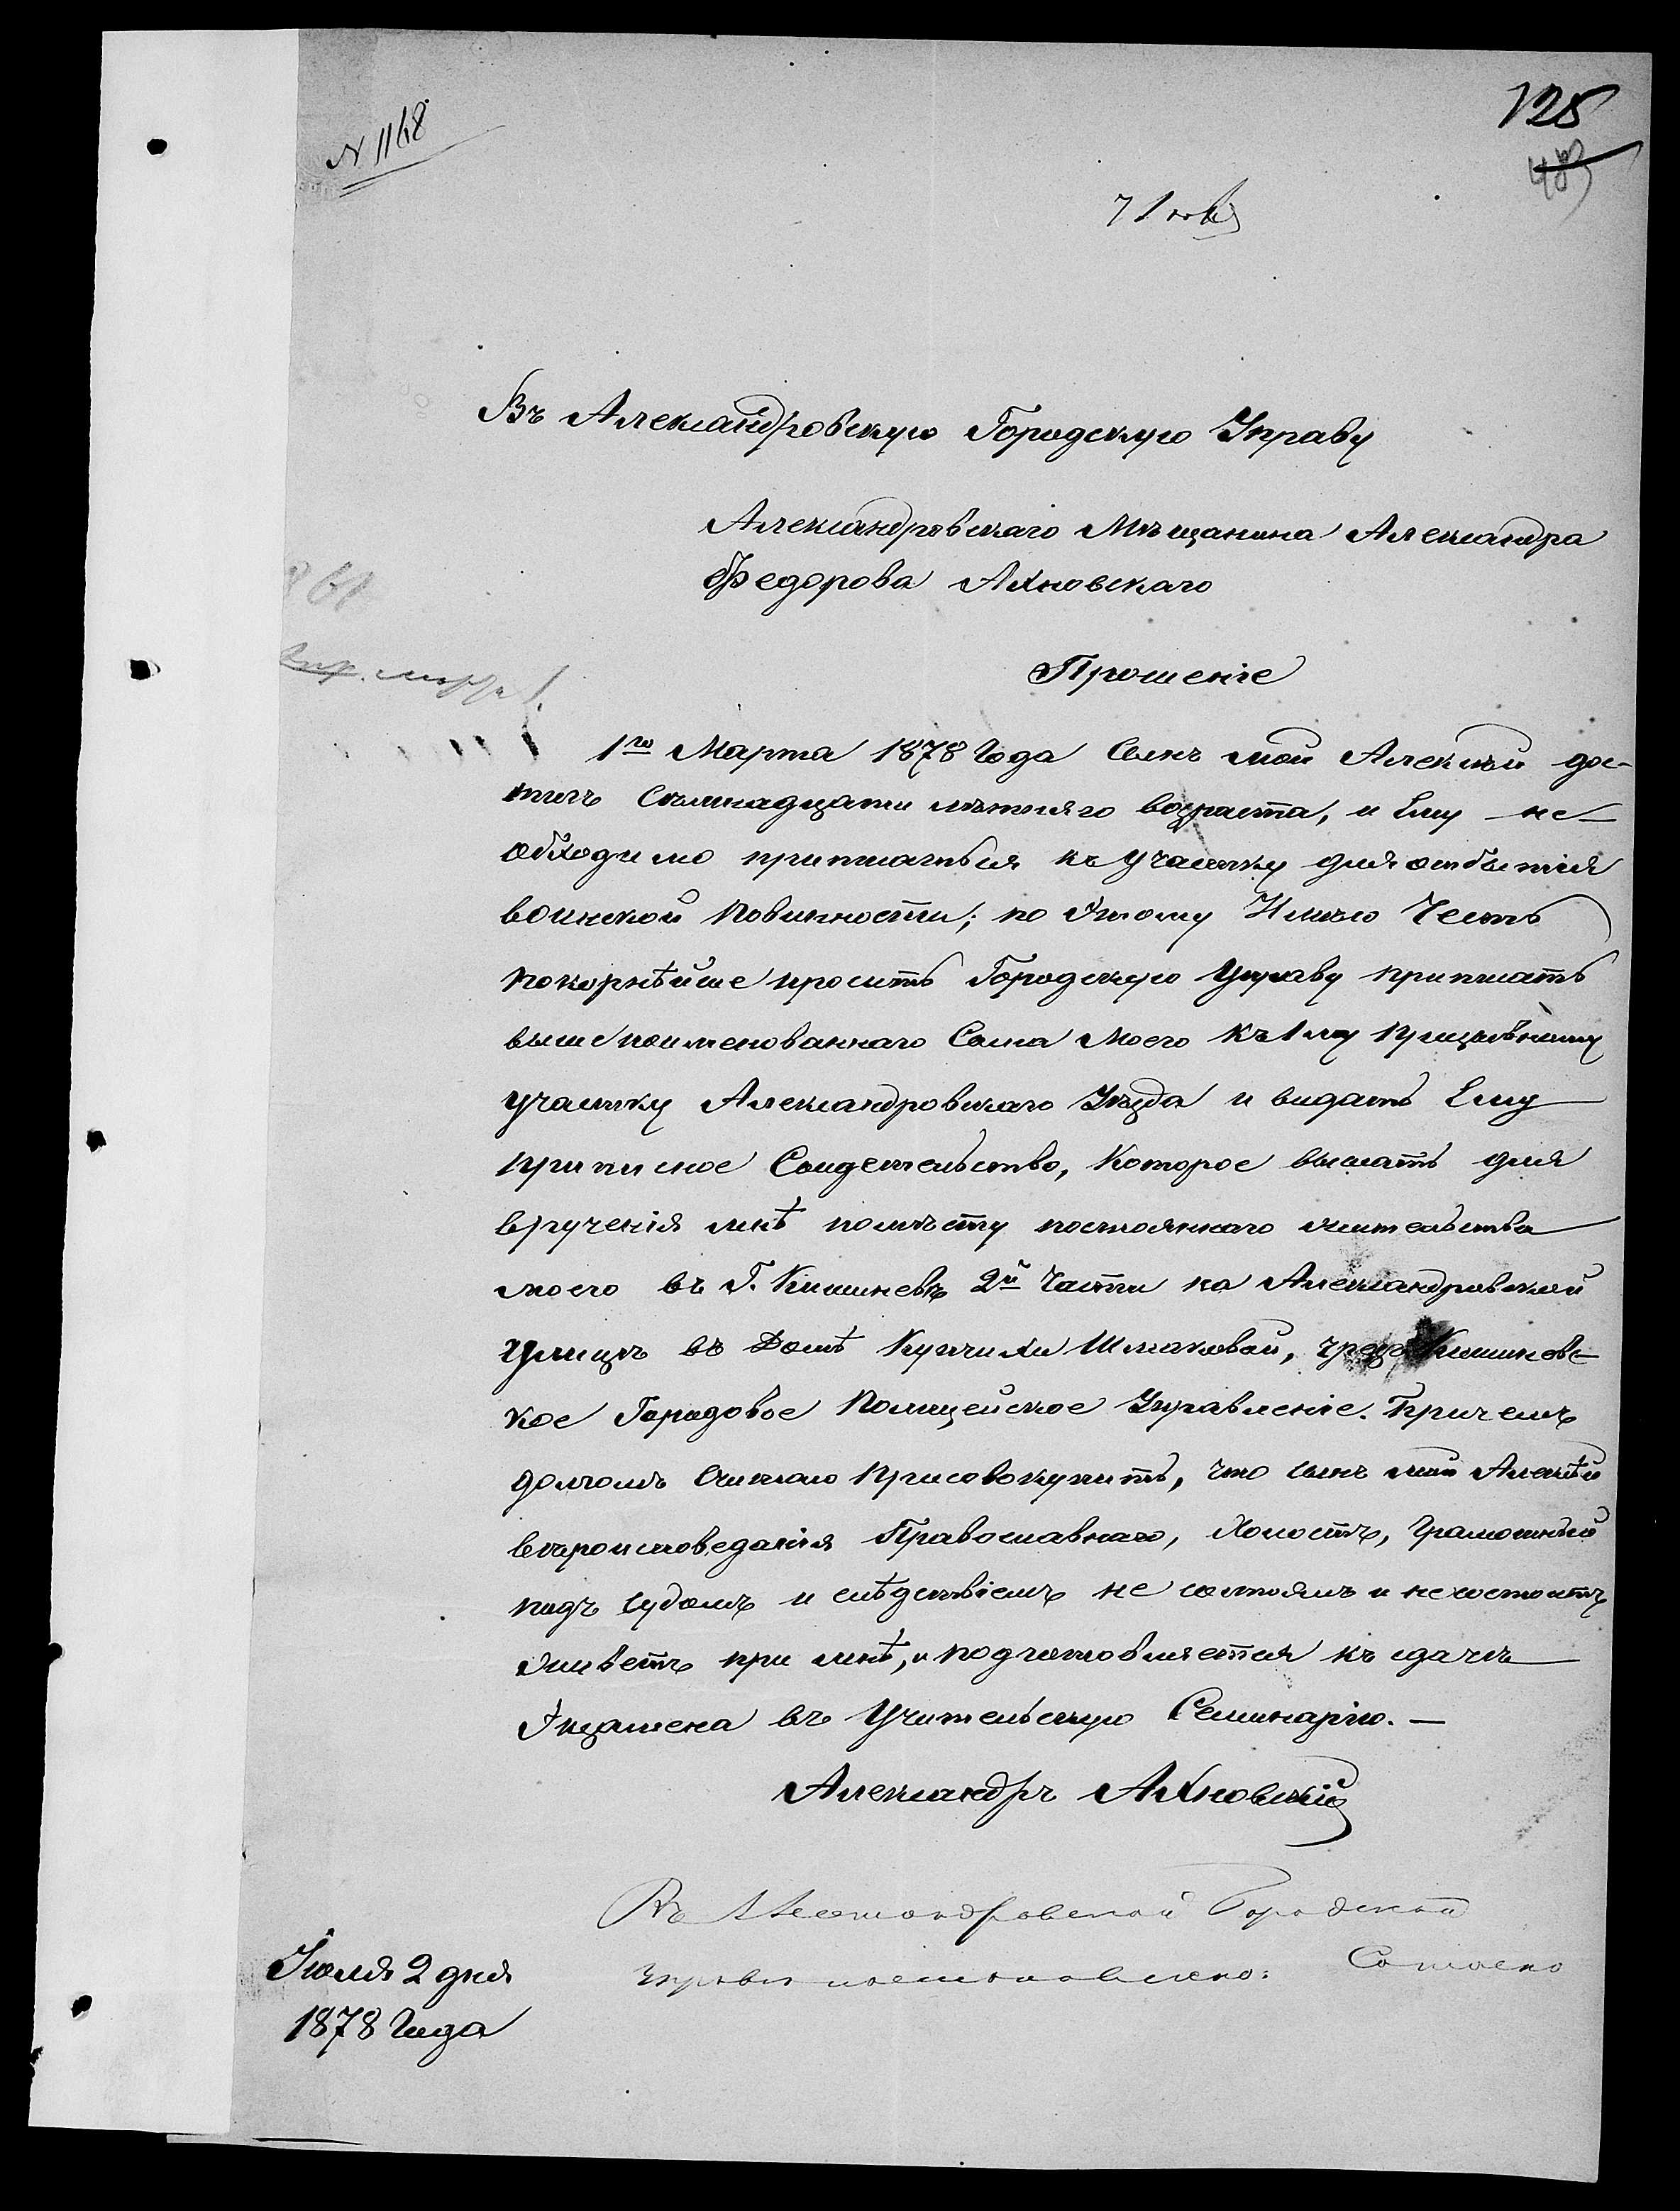 N 1148
125
483
7 Іюля
Въ Александровскую Городскую Управу
Александровскаго Мѣщанина Александра
Федорова Ахновскаго
Прошеніе
1го Марта 1878 Года Сынъ мой Алексѣй дос-
тигъ Сѣмнадцати лѣтняго возраста, и Ему не-
обходимо приписаться къ участку для отбытія
воинской повинности; по Этому Имѣю Честь
покорнѣйше просить Городскую Управу приписать
вышепоименованнаго Сына моего къ 1му призывному
участку Александровскаго Уѣзда и видать Ему
приписное Свидетельство, Которое выслать для
врученія мнѣ помѣсту постояннаго жительства
моего въ Г. Кишиневѣ 2й Части на Александровской
Улицѣ въ Домѣ Купчихи Шмаковой, чрезъ Кишиневс-
кое Городовое Полицейское Управленіе. Причемъ
долгомъ Считаю присовокупить, что сынъ мой Алексѣй
вѣроисповеданія Православнаго, Холостъ, Грамотный
подъ судомъ и слѣдствіемъ не состоялъ и несостоитъ,
живетъ при мнѣ, и подготовляется къ сдачѣ
Экзамена въ Учительскую Семинарію. —
Александръ Ахновскій
Въ Александровской Городской
Управѣ постановлено:
Іюля 2 дня
1878 Года